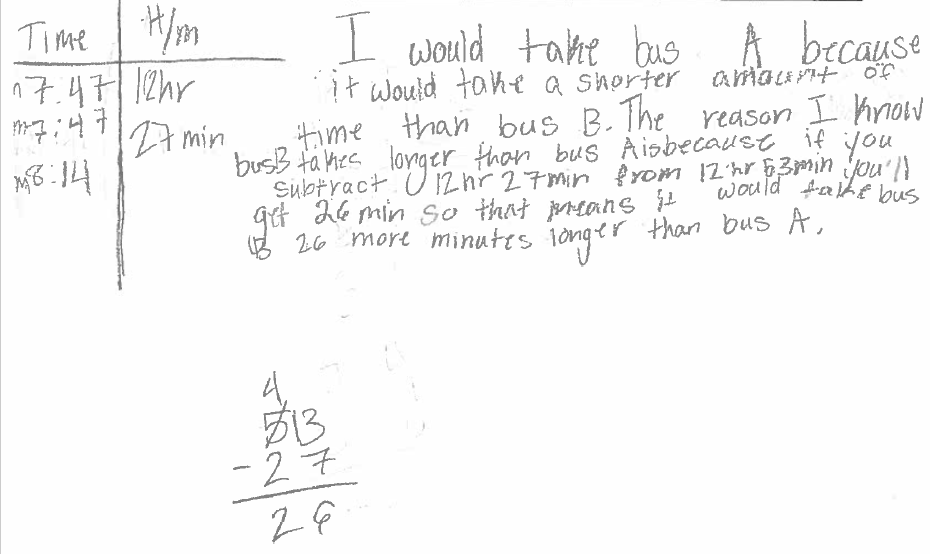 Time H/m
n7:47 12hr
m7:47 27min
m8:14
I would take bus A because
it would take a shorter amount of
time than bus B. The reason I know
busB takes longer than bus Aisbecause if you
subtract 12hr 27min from 12hr 53min you'll
get 26 min so that means it would take bus
B 26 more minutes longer than bus A.
4
513
- 27
26